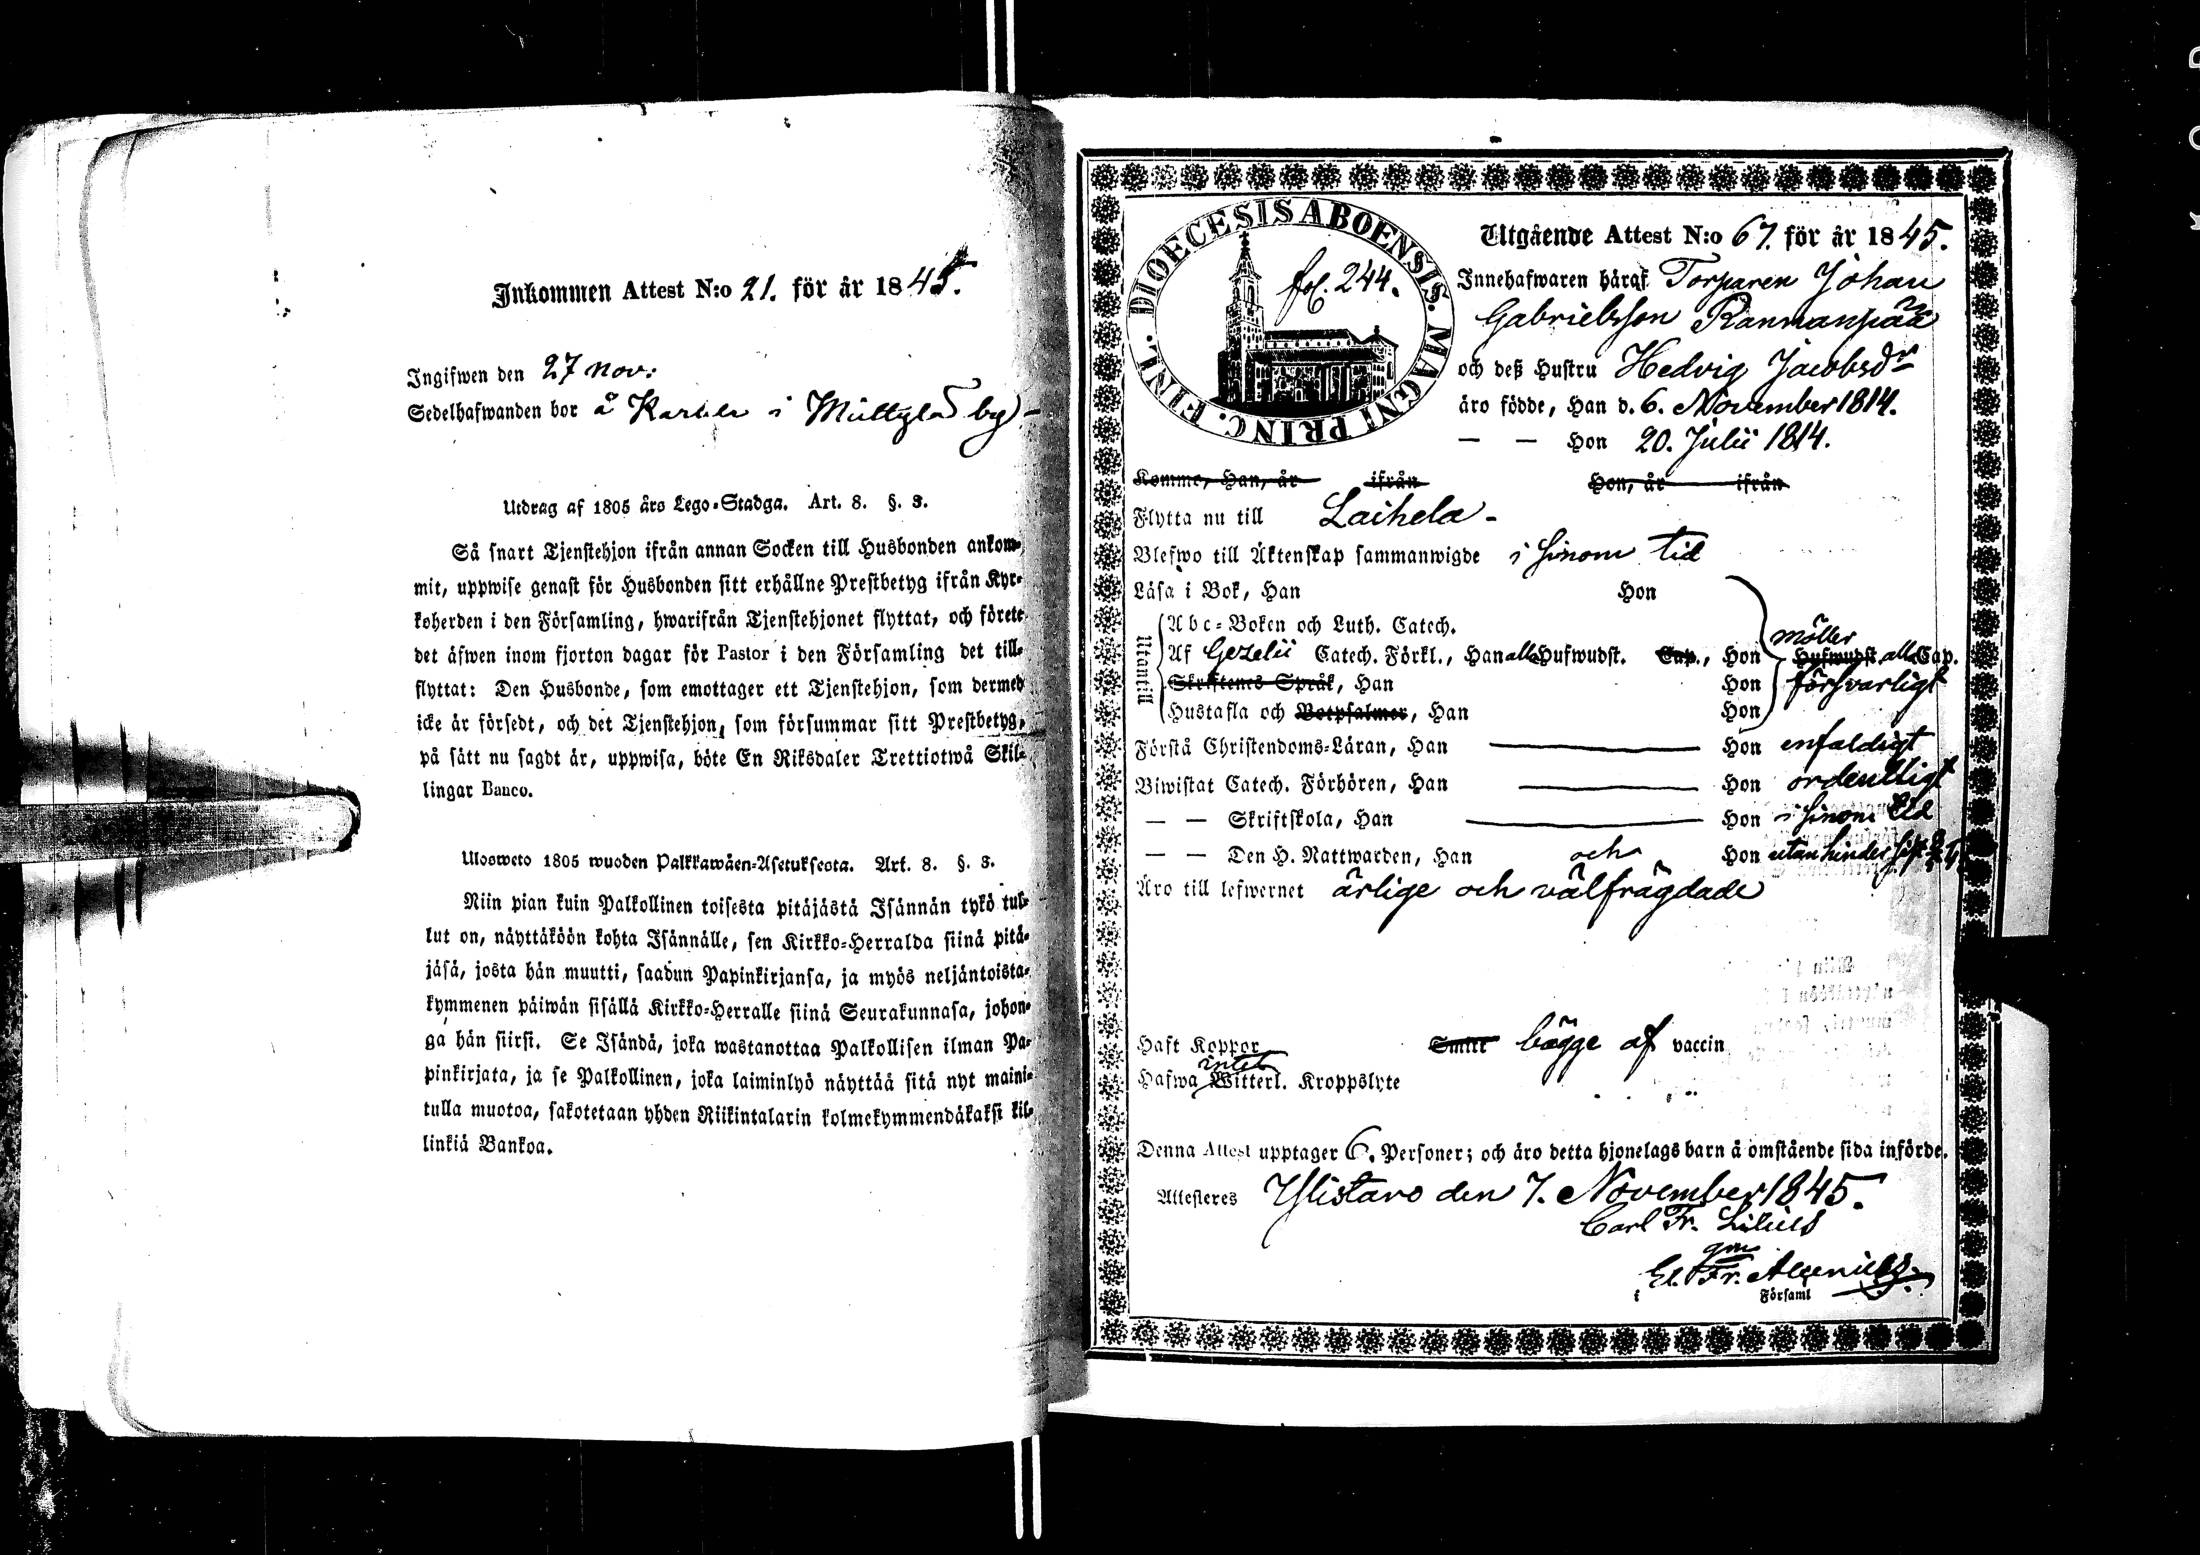 Inkommen Attest N:o 21. för år 1845.
Ingifwen den 27 nov:
Sedelhafwanden bor å i by
Utdrag af 1805 års Lego-Stadga. Art. 8. §. 3.
Så snart Tjenstehjon ifrån annan Socken till Husbonden ankom-
mit, uppwise genast för Husbonden sitt erhållne Prestbetyg ifrån Kyr-
koherden i den Församling, hwarifrån Tjenstehjonet flyttat, och förete
det äfwen inom fjorton dagar för Pastor i den Församling det till-
flyttat: Den Husbonde, som emottager ett Tjenstehjon, som dermed
icke är försedt, och det Tjenstehjon, som försummar sitt Prestbetyg,
på sätt nu sagdt är, uppwisa, böte En Riksdaler Trettiotwå Skil-
lingar Banco.
Ulosweto 1805 wuoden Palkkawäen-Asetuksesta. Art. 8. §. 3.
Niin pian kuin Palkollinen toisesta pitäjästä Isännän tykö tul-
lut on, näyttäköön kohta Isännälle, sen Kirkko-Herralda siinä pitä-
jäsä, josta hän muutti, saadun Papinkirjansa, ja myös neljäntoista-
kymmenen päiwän sisällä Kirkko-Herralle siinä Seurakunnasa, johon-
ga hän siirsi. Se Isändä, joka wastanottaa Palkollisen ilman Pa-
pinkirjata, ja se Palkollinen, joka laiminlyö näyttää sitä nyt maini-
tulla muotoa, sakotetaan yhden Riikintalarin kolmekymmendäkaksi kil-
linkiä Bankoa.
DIOECESIS ABOENSIS. MAGNI PRINC. FINL.
fol. 244.
Utgående Attest N:o 67. för år 1845.
Innehafwaren häraf Torparen Johan
Gabrielsson Ranmanpää
och deß Hustru Hedvig Jacobsdr
äro födde, Han d. 6. November 1814.
— — Hon 20. Julii 1814.
Komme, Han, år ifrån Hon, år ifrån
Flytta nu till Laihela -
Blefwo till Äktenskap sammanwigde i sinom tid
Läsa i Bok, Han Hon
Utantill
Abc-Boken och Luth. Catech.
Af Gezelii Catech. Förkl., Han alla Hufwudst. Cap., Hon Hufwudst. alla Cap.
möller
Skriftenes Språk, Han Hon försvarligt
Hustafla och Botpsalmer, Han Hon
Förstå Christendoms-Läran, Han Hon enfaldigt
Biwistat Catech. Förhören, Han Hon ordentligt
— — Skriftskola, Han Hon i sinom tid
— — Den H. Nattwarden, Han och Hon utan hinder sist
Äro till lefwernet ärlige och välfrägdade
Haft Koppor Smitt bägge af vaccin
intet
Hafwa Witterl. Kroppslyte
Denna Attest upptager 6. Personer; och äro detta hjonelags barn å omstående sida införde.
Attesteres Ylistaro den 7. November 1845.
Carl Fr. Lilius
gm
El. Fr. Alcenius
i Församl